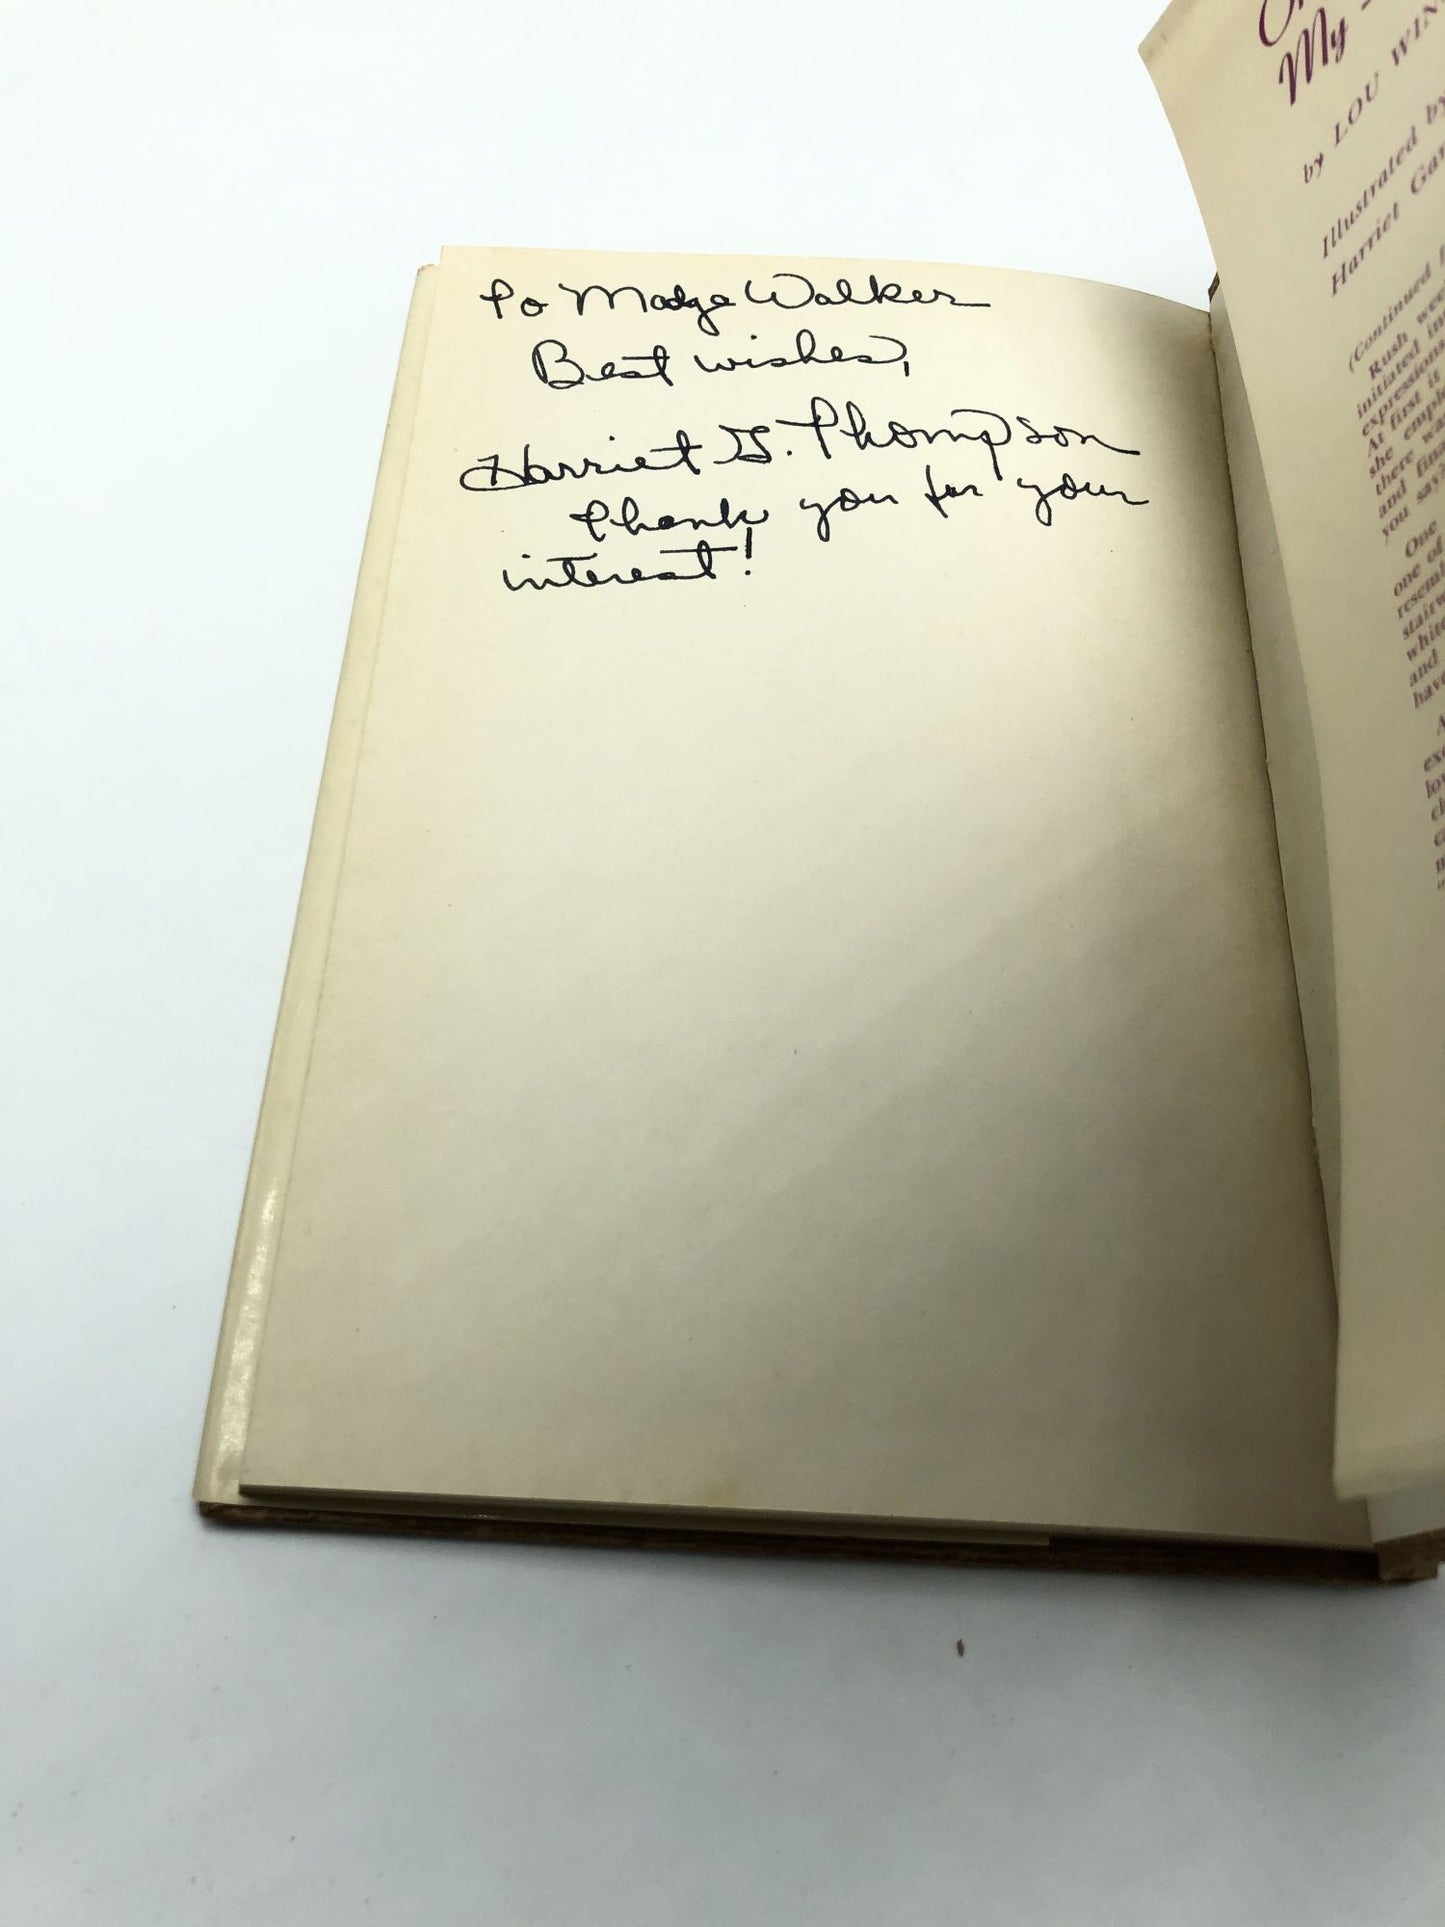 To Madge Walker
Best wishes,
Harriet G. Thompson
Thank you for your
interest!
My
by LOU
Illustrated by
Harriet
(Continued
Rush
initiated
expressions
At first it
she
there
and
you say?
One
one of
and
have